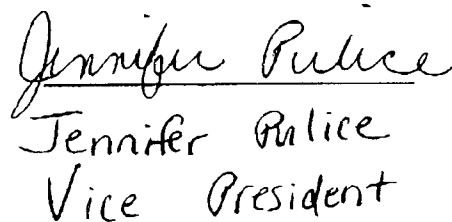 Jennifer Pulice
Jennifer Pulice
Vice President